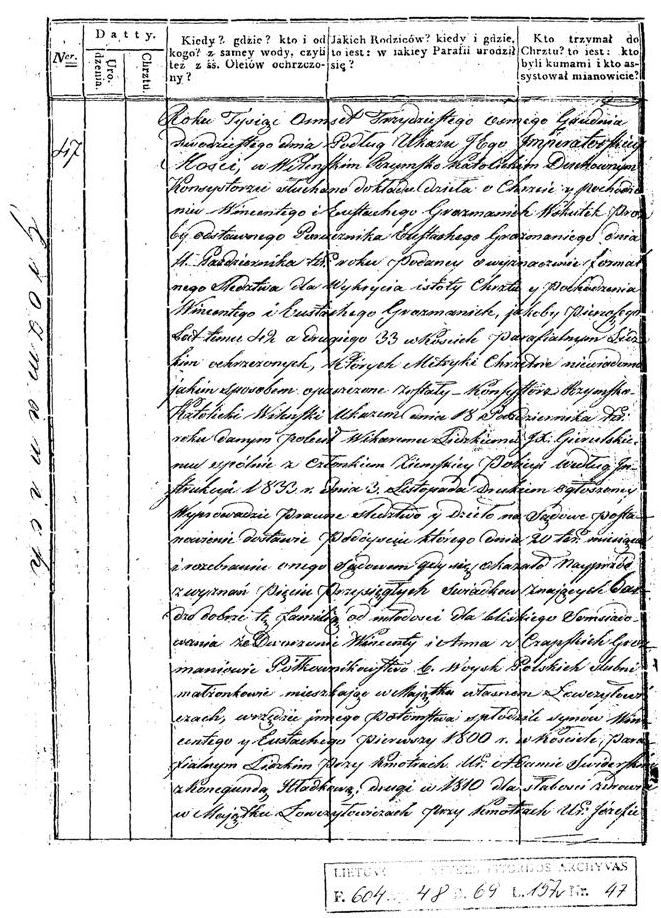 Ner.
Datty.
Urodzenia.
Chrztu.
Kiedy? gdzie? kto i od
kogo? z samey wody, czyli
też z śś. Oleiów ochrzczo-
ny?
Jakich Rodziców? kiedy i gdzie,
to iest: w iakiey Parafii urodził
się?
Kto trzymał do
Chrztu? to iest: kto
byli kumami i kto as-
systował mianowicie?
47
Grozmanich
Roku Tysiąc Osmset Trzydziestego osmego Grudnia
dwudziestego dnia Podług Ukazu Jego Imperatorskiey
Mości, w Wileńskim Rzymsko Katolickim Duchownym
Konsystorzu słuchano dokładu dzieła o Chrzcie y pochodze-
niu Wincentego i Eustachego Grozmanich Wskutek Proź-
by odstawnego Porucznika Eustachego Grozmaniego dnia
11 Października roku Podaney o wyznaczenie formal-
nego Sledztwa dla Wykrycia istoty Chrztu y Pochodzenia
Wincentego i Eustachego Grozmanich, jakoby Pierwszego
lat temu 42 a drugiego 33 w Kościele Parafialnym Lidz-
kim ochrzczonych, których Metryki Chrzestne niewiadomo
jakim sposobem opuszczone zostały - Konsystorz Rzymsko-
Katolicki Wileński Ukazem dnia 18 Października
roku danym polecił Wikaremu Lidzkiemu
mu wspólnie z Członkiem Ziemskiey Policyi według In-
strukcji 1833 r. dnia 3. Listopada Drukiem ogłoszoney
Wyprowadzić Prawne sledztwo y dzieło na Sądowe posta-
nowienie dostawić Po doyściu którego dnia 20 miesiąca
i rozebraniu onego Sądowem gdy się okazało Nayprzód
z wyznań Pięciu Przysięgłych Swiadków znających bar-
dzo dobrze tę familię od młodości dla bliskiego Somsiado-
wania że Dworzanie Wincenty i Anna z Czapskich Groz-
maniowie Półkownikowstwo b. Woysk Polskich ślubni
małżonkowie mieszkając w Majątku własnem
czach, w rzędzie innego Potomstwa spłodzili synow Win-
centego y Eustachego pierwszy 1800 r. w Kościele Para-
fialnym Lidzkim Przy Kmotrach Ur. Adamie
z Konegundą drugi w 1810 dla słabości zdrowia
w Majątku przy Kmotrach Ur. Józefie
LIETUVOS ISTORIJOS ARCHYVAS
F. 604 48 69 L. 157 Nr. 47